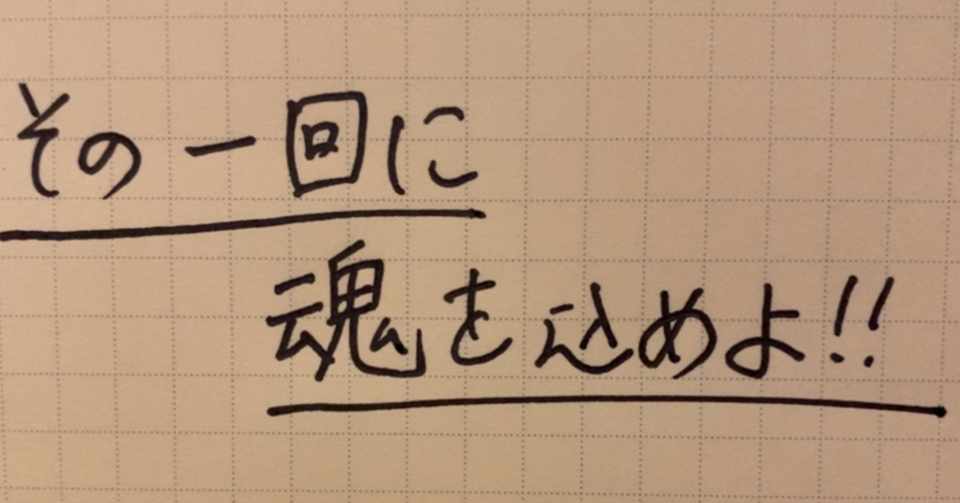 その一回に
魂を込めよ!!